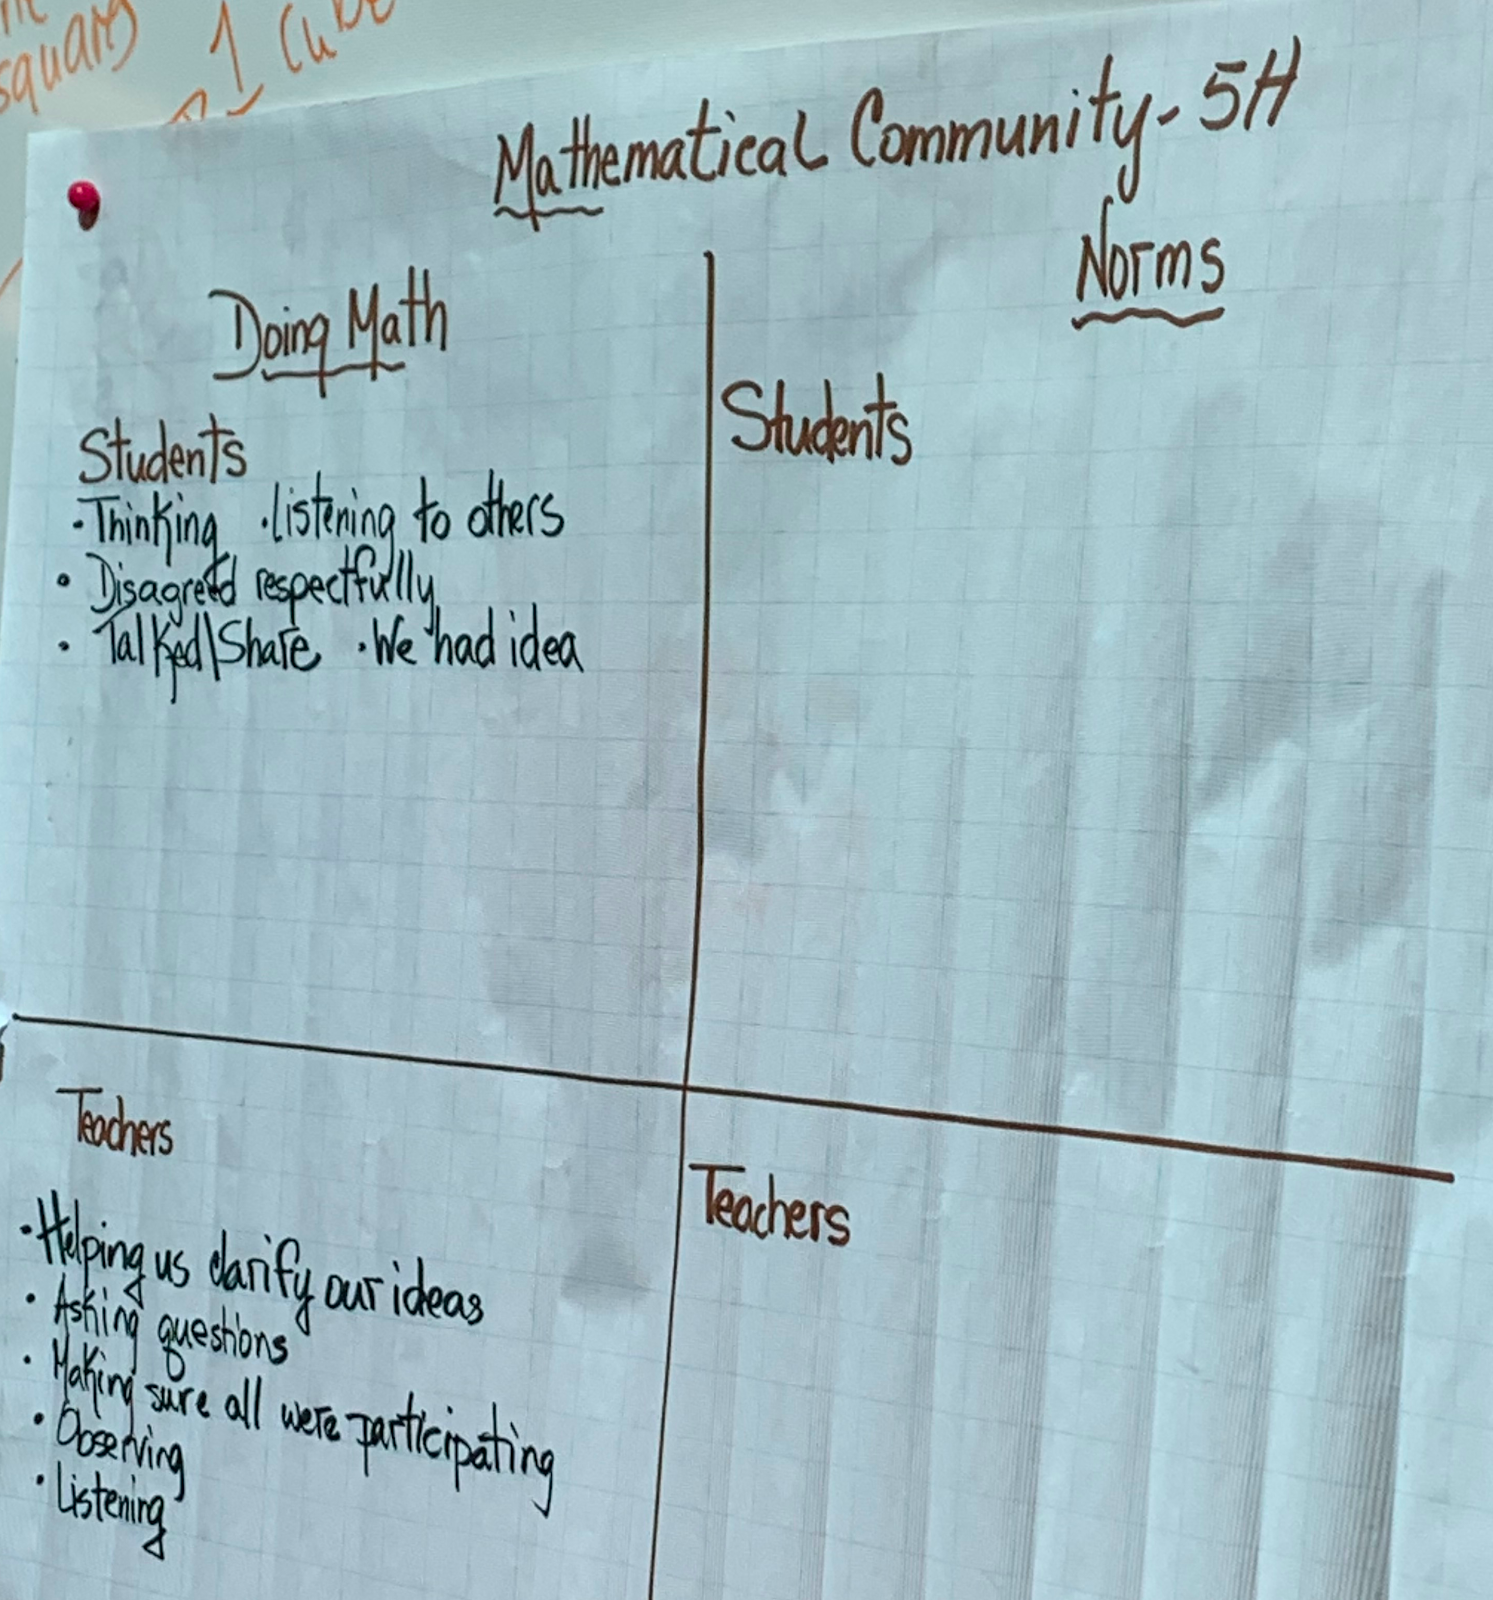 squares
1 Cube
Mathematical Community - 5H
Doing Math
Students
·Thinking ·Listening to others
· Disagreed respectfully
· Talked|Share ·We had idea
Norms
Students
Teachers
·Helping us clarify our ideas
· Asking questions
· Making sure all were participating
· Observing
· Listening
Teachers